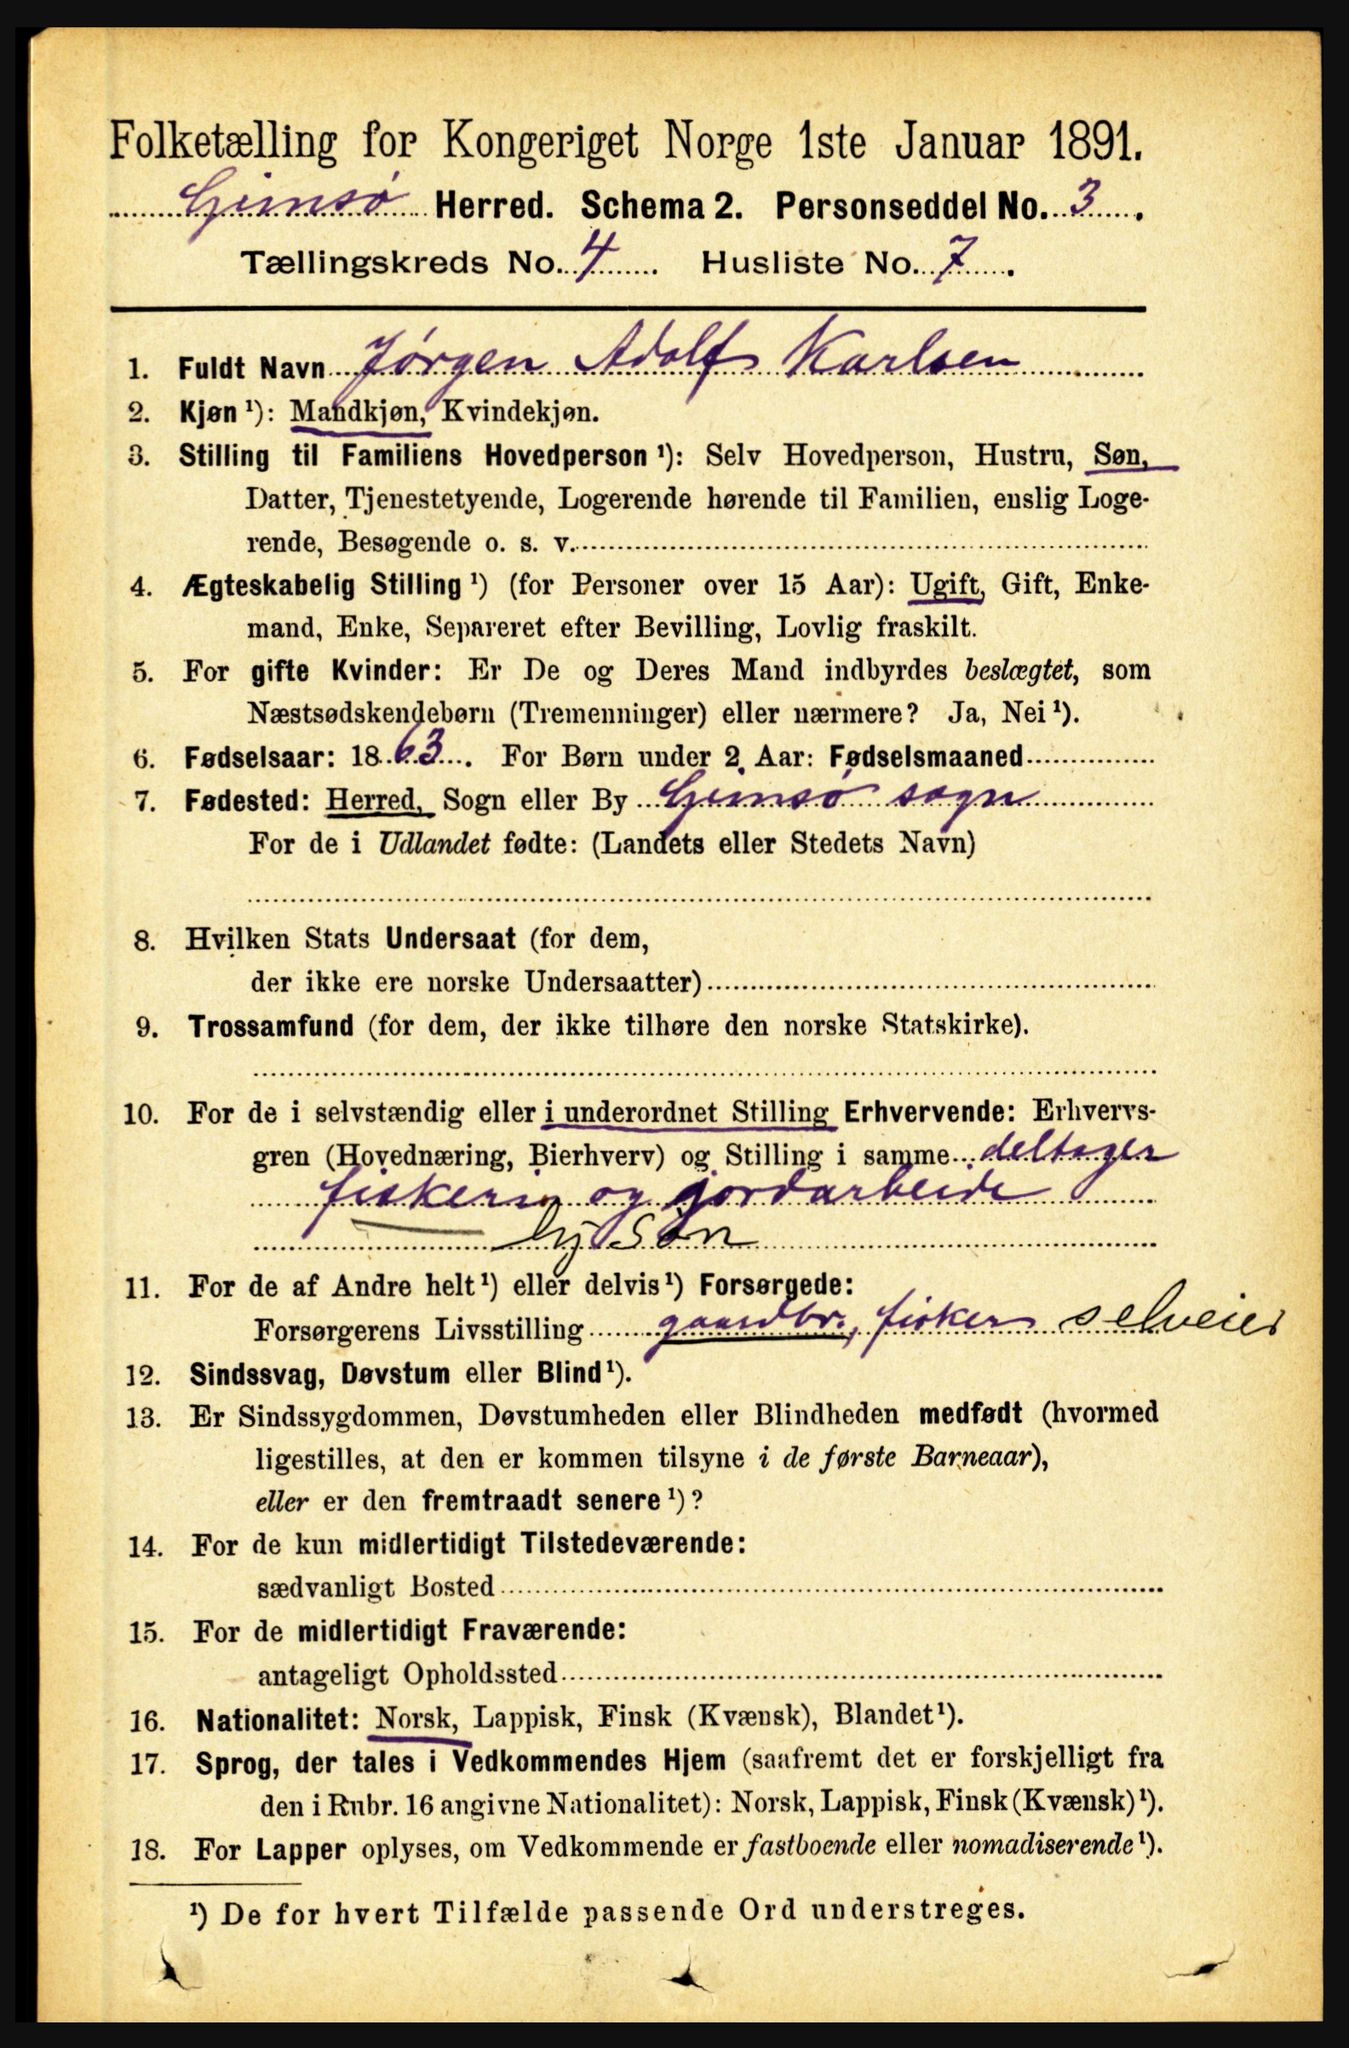 Folketælling for Kongeriget Norge 1ste Januar 1891.
Gimsø Herred. Schema 2. Personseddel No. 3.
Tællingskreds No. 4. Husliste No. 7.
1. Fuldt Navn Jørgen Adolf Karlsen
2. Kjøn ¹): Mandkjøn, Kvindekjøn.
3. Stilling til Familiens Hovedperson ¹): Selv Hovedperson, Hustru, Søn,
Datter, Tjenestetyende, Logerende hørende til Familien, enslig Loge-
rende, Besøgende o. s. v.
4. Ægteskabelig Stilling ¹) (for Personer over 15 Aar): Ugift, Gift, Enke-
mand, Enke, Separeret efter Bevilling, Lovlig fraskilt.
5. For gifte Kvinder: Er De og Deres Mand indbyrdes beslægtet, som
Næstsødskendebørn (Tremenninger) eller nærmere? Ja, Nei ¹).
6. Fødselsaar: 1863. For Børn under 2 Aar: Fødselsmaaned
7. Fødested: Herred, Sogn eller By Gimsø sogn
For de i Udlandet fødte: (Landets eller Stedets Navn)
8. Hvilken Stats Undersaat (for dem,
der ikke ere norske Undersaatter)
9. Trossamfund (for dem, der ikke tilhøre den norske Statskirke).
10. For de i selvstændig eller i underordnet Stilling Erhvervende: Erhvervs-
gren (Hovednæring, Bierhverv) og Stilling i samme deltager
fiskeri og jordarbeide
hj Søn
11. For de af Andre helt ¹) eller delvis ¹) Forsørgede:
Forsørgerens Livsstilling gaardbr., fisker selveier
12. Sindssvag, Døvstum eller Blind ¹).
13. Er Sindssygdommen, Døvstumheden eller Blindheden medfødt (hvormed
ligestilles, at den er kommen tilsyne i de første Barneaar),
eller er den fremtraadt senere ¹)?
14. For de kun midlertidigt Tilstedeværende:
sædvanligt Bosted
15. For de midlertidigt Fraværende:
antageligt Opholdssted
16. Nationalitet: Norsk, Lappisk, Finsk (Kvænsk), Blandet ¹).
17. Sprog, der tales i Vedkommendes Hjem (saafremt det er forskjelligt fra
den i Rubr. 16 angivne Nationalitet): Norsk, Lappisk, Finsk (Kvænsk) ¹).
18. For Lapper oplyses, om Vedkommende er fastboende eller nomadiserende ¹).
¹) De for hvert Tilfælde passende Ord understreges.